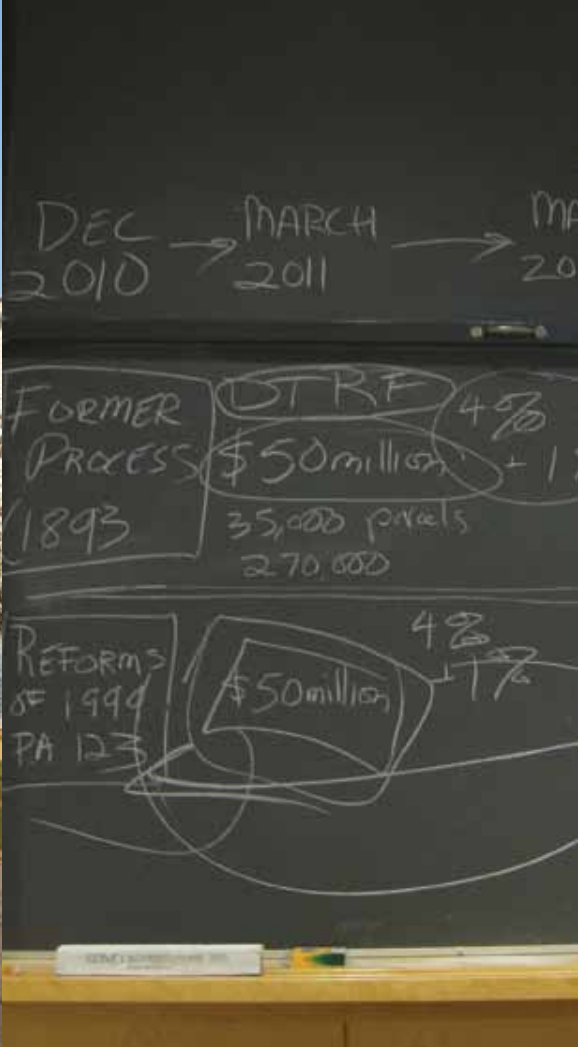 DEC → MARCH → MA
2010 2011 20
FORMER
PROCESS
(1893
DTRF
$50 million
35,000 parcels
270,000
4%
+ 1
REFORMS
OF 1999
PA 123
$50 million
4%
+ 1%